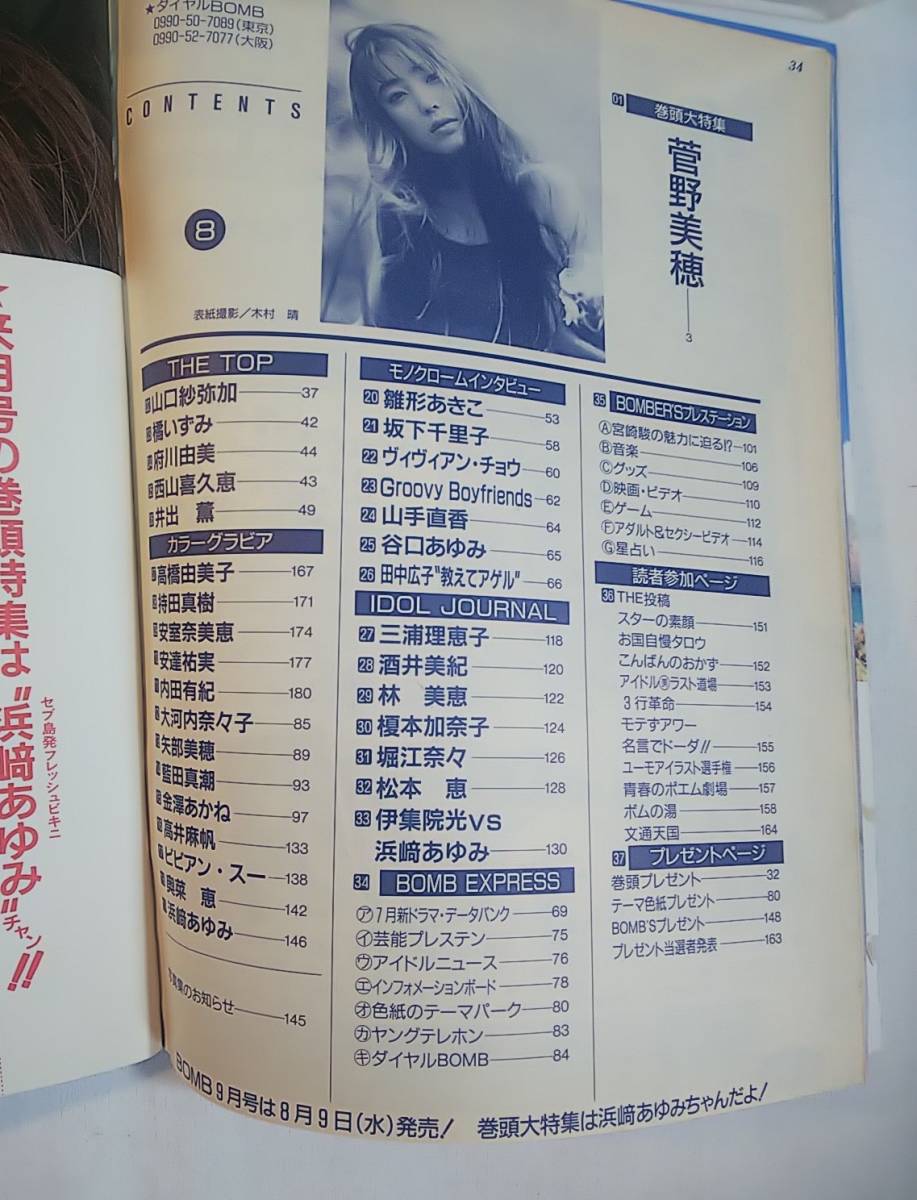 ★ダイヤルBOMB
0990-50-7089(東京)
0990-52-7077(大阪)
CONTENTS
8
表紙撮影/木村 晴
34
01 巻頭大特集
菅野美穂 3
THE TOP
山口紗弥加 37
橘いずみ 42
府川由美 44
西山喜久恵 43
井出 薫 49
カラーグラビア
高橋由美子 167
持田真樹 171
安室奈美恵 174
安達祐実 177
内田有紀 180
大河内奈々子 85
矢部美穂 89
藍田真潮 93
金澤あかね 97
高井麻帆 133
ビビアン・スー 138
奥菜 恵 142
浜﨑あゆみ 146
写真集のお知らせ 145
モノクロームインタビュー
20 雛形あきこ 53
21 坂下千里子 58
22 ヴィヴィアン・チョウ 60
23 Groovy Boyfriends 62
24 山手直香 64
25 谷口あゆみ 65
26 田中広子"教えてアゲル" 66
IDOL JOURNAL
27 三浦理恵子 118
28 酒井美紀 120
29 林 美恵 122
30 榎本加奈子 124
31 堀江奈々 126
32 松本 恵 128
33 伊集院光VS
浜﨑あゆみ 130
34 BOMB EXPRESS
㋐7月新ドラマ・データバンク 69
㋑芸能プレステン 75
㋒アイドルニュース 76
㋓インフォメーションボード 78
㋔色紙のテーマパーク 80
㋕ヤングテレホン 83
㋖ダイヤルBOMB 84
35 BOMBER'Sプレステーション
Ⓐ宮崎駿の魅力に迫る!? 101
Ⓑ音楽 106
Ⓒグッズ 109
Ⓓ映画・ビデオ 110
Ⓔゲーム 112
Ⓕアダルト&セクシービデオ 114
Ⓖ星占い 116
読者参加ページ
36 THE投稿
スターの素顔 151
お国自慢タロウ
こんばんのおかず 152
アイドル㊙ラスト道場 153
3行革命 154
モテずアワー
名言でドーダ!! 155
ユーモアイラスト選手権 156
青春のポエム劇場 157
ボムの湯 158
文通天国 164
37 プレゼントページ
巻頭プレゼント 32
テーマ色紙プレゼント 80
BOMB'Sプレゼント 148
プレゼント当選者発表 163
BOMB9月号は8月9日(水)発売! 巻頭大特集は浜﨑あゆみちゃんだよ!
★来月号の巻頭特集は"浜﨑あゆみ"チャン!!
セブ島発フレッシュビキニ